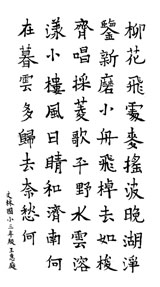 柳花飛雪麥搖波晚湖淨
鑒新磨小舟飛棹去如梭
齊唱採菱歌平野水雲溶
漾小樓風日晴和濟南何
在暮雲多歸去奈愁何
文林國小三年級王惠